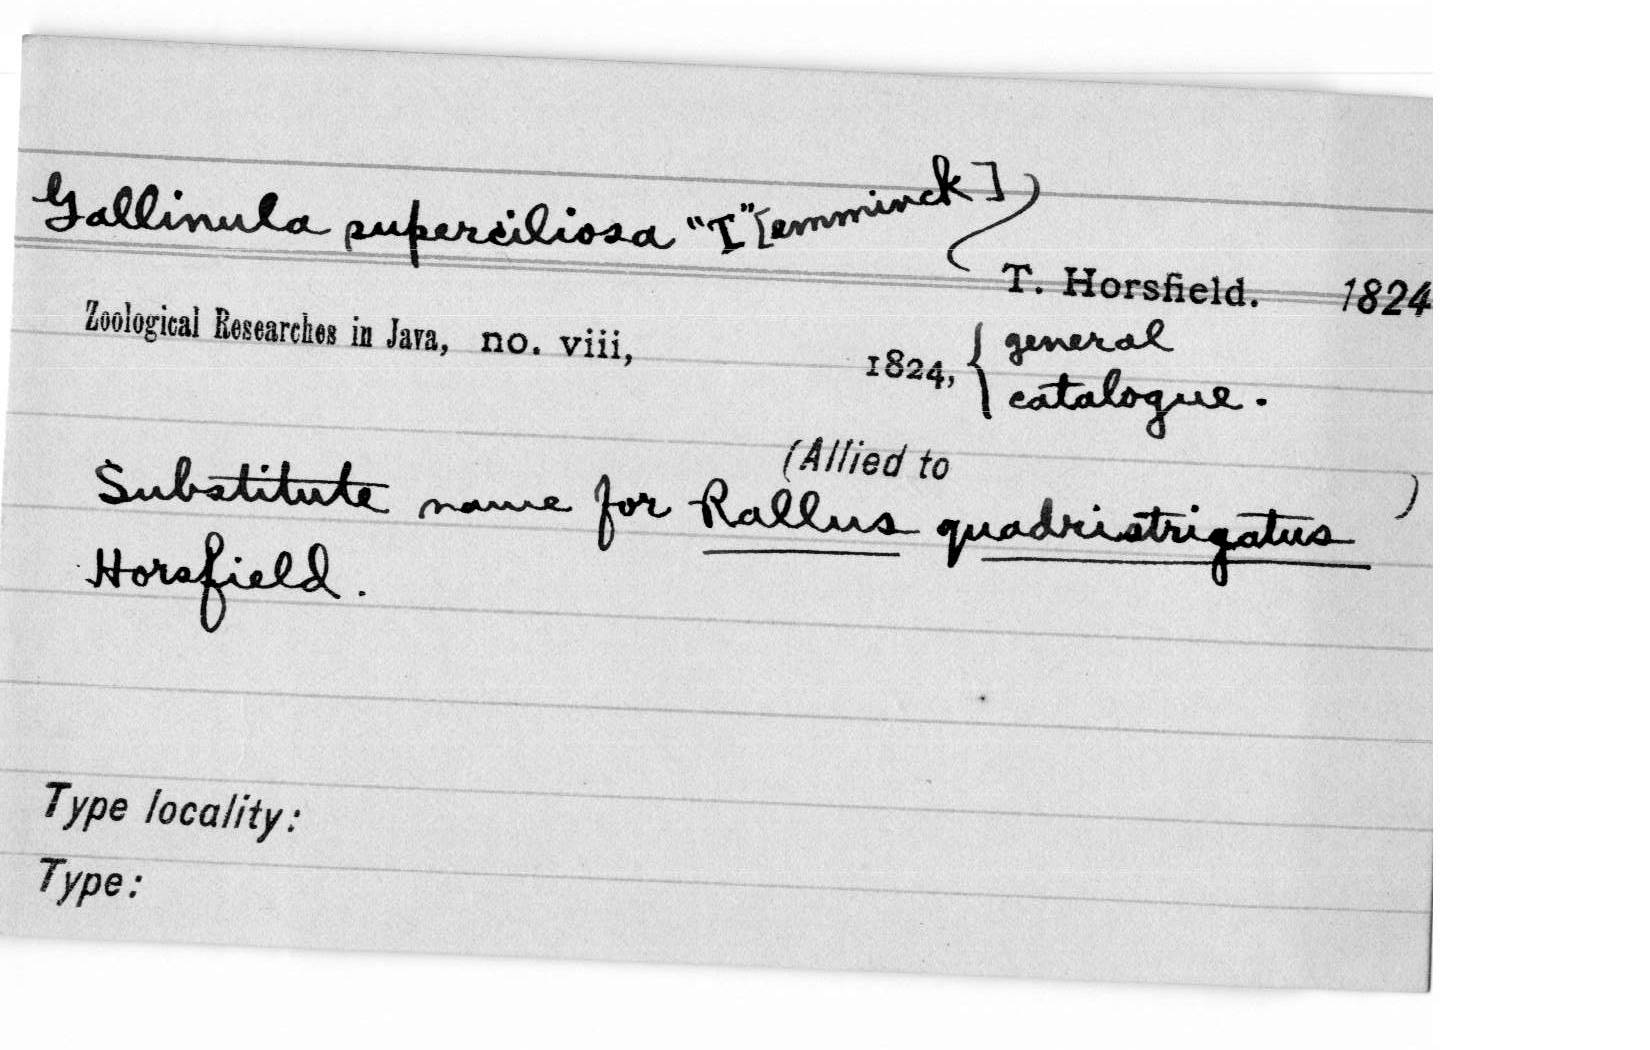 Gallinula superciliosa "T" [emminck]
T. Horsfield. 1824
Zoological Researches in Java, no. viii, 1824, { general
catalogue.
(Allied to )
Substitute name for Rallus quadristrigatus
Horsfield.
Type locality:
Type: